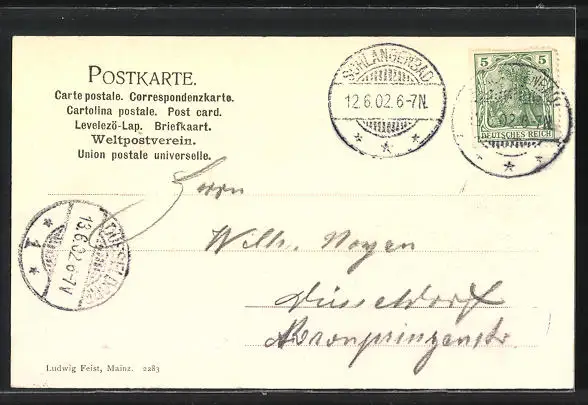 POSTKARTE.
Carte postale. Correspondenzkarte.
Cartolina postale. Post card.
Levelező-Lap. Briefkaart.
Weltpostverein.
Union postale universelle.
SCHLANGENBAD
12.6.02.6-7N.
5 5
DEUTSCHES REICH
02.6-7N.
Herrn
Wilh. Noyen
Düsseldorf
Kronprinzenstr.
13.6.02.6-7V
1
Ludwig Feist, Mainz. 2283